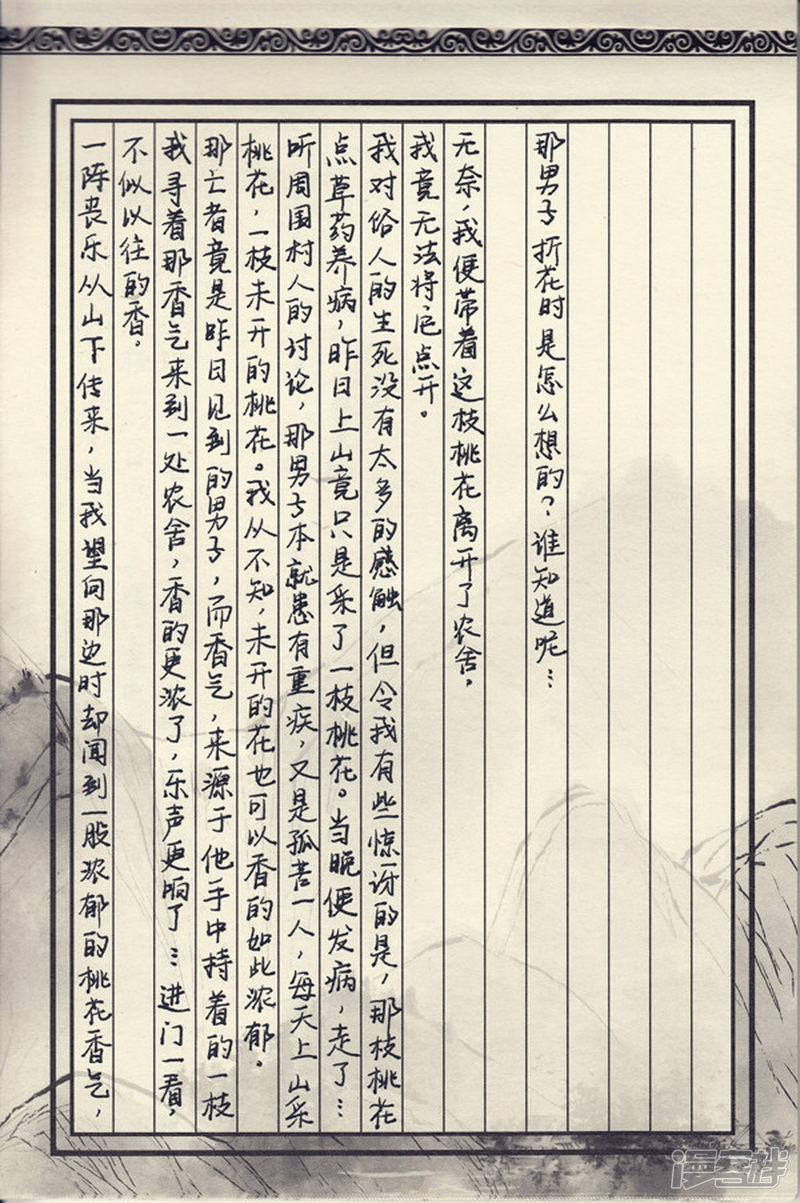 一阵丧乐从山下传来，当我望向那边时却闻到一股浓郁的桃花香气，
不似以往的香。
我寻着那香气来到一处农舍，香的更浓了，乐声更响了…进门一看，
那亡者竟是昨日见到的男子，而香气，来源于他手中持着的一枝
桃花，一枝未开的桃花。我从不知，未开的花也可以香的如此浓郁。
听周围村人的讨论，那男子本就患有重疾，又是孤苦一人，每天上山采
点草药养病，昨日上山竟只是采了一枝桃花。当晚便发病，走了…
我对俗人的生死没有太多的感触，但令我有些惊讶的是，那枝桃花
我竟无法将它点开。
无奈，我便带着这枝桃花离开了农舍，
那男子折花时是怎么想的？谁知道呢…
漫客栈